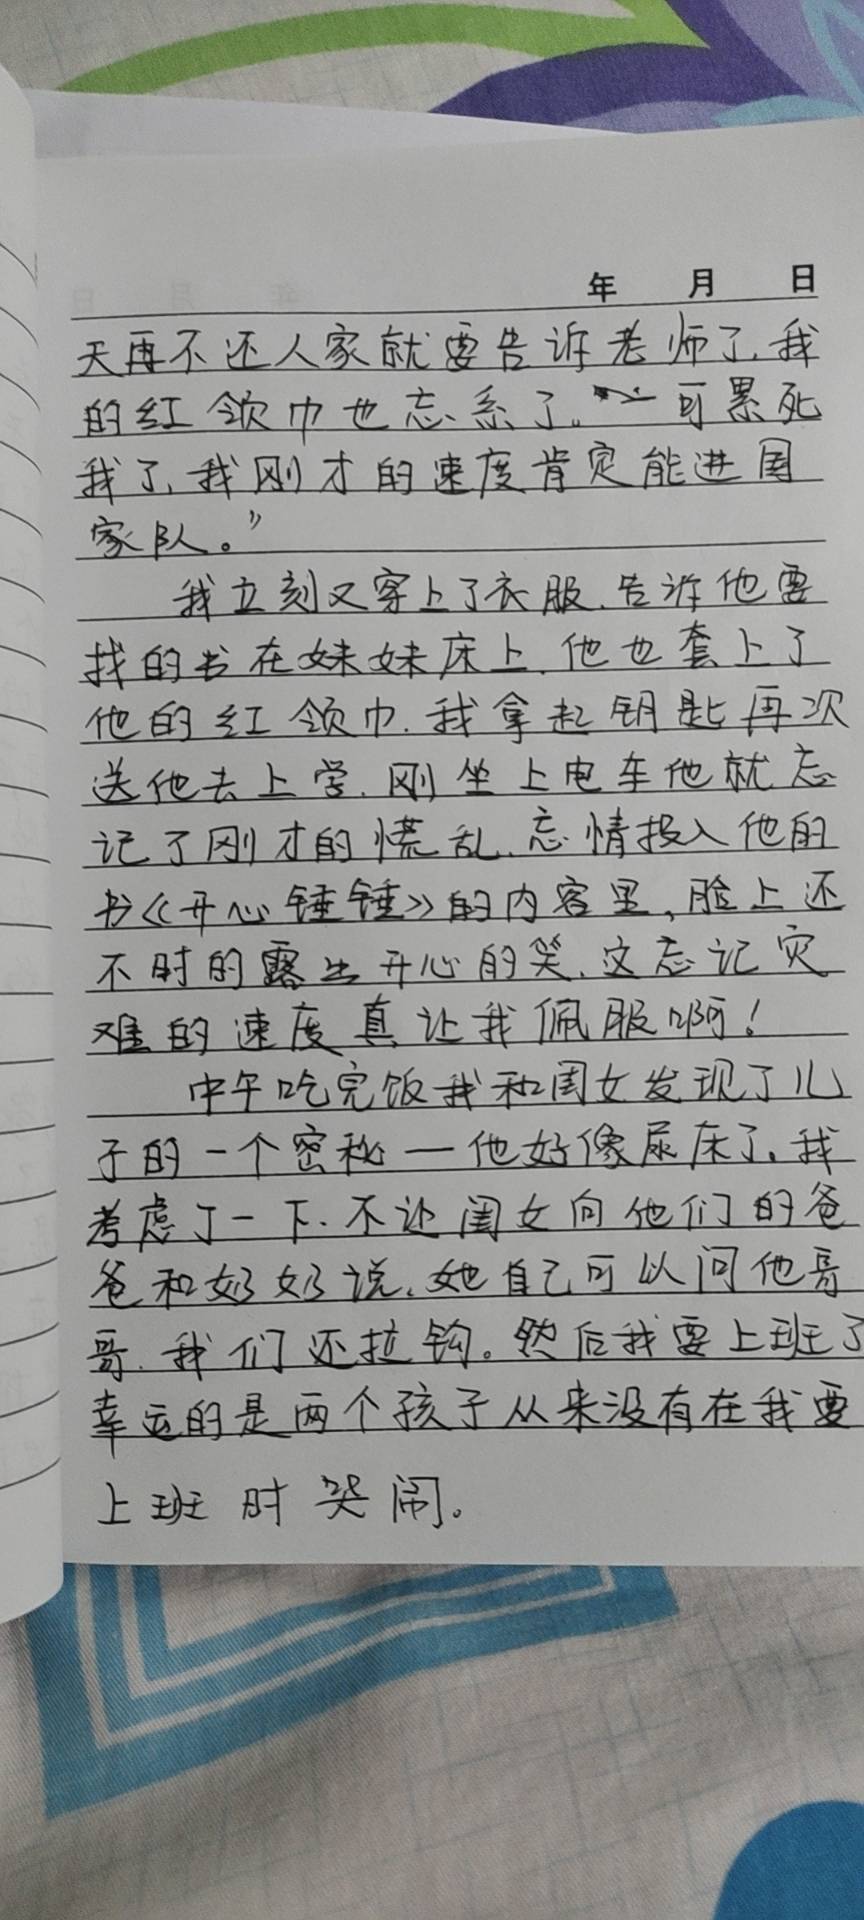 年 月 日
天再不还人家就要告诉老师了，我
的红领巾也忘系了。可累死
我了，我刚才的速度肯定能进国
家队。”
我立刻又穿上了衣服，告诉他要
找的书在妹妹床上，他也套上了
他的红领巾，我拿起钥匙再次
送他去上学，刚坐上电车他就忘
记了刚才的慌乱，忘情投入他的
书《开心锤锤》的内容里，脸上还
不时的露出开心的笑，这忘记灾
难的速度真让我佩服啊！
中午吃完饭我和闺女发现了儿
子的一个密秘—他好像尿床了，我
考虑了一下，不让闺女向他们的爸
爸和奶奶说，她自己可以问他哥
哥，我们还拉钩。然后我要上班了
幸运的是两个孩子从来没有在我要
上班时哭闹。